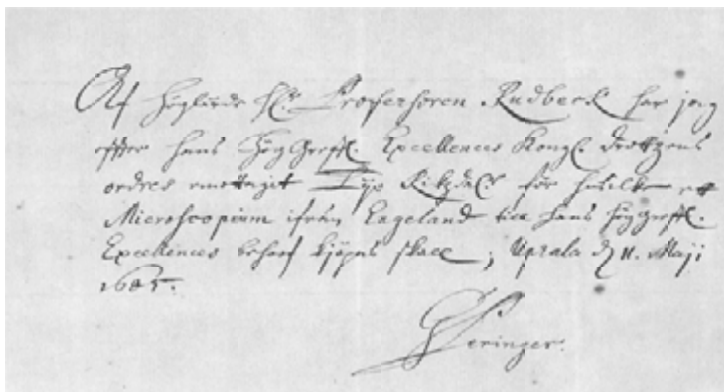 Af Höglärde H:r Professoren Rudbeck har jag
effter hans HögGrefl. Excellences Kongl. Drottzens
ordres emottagit Tijo Rikzdal:r för hwilka ett
Microscopium ifrån Engeland till hans HögGrefl.
Excellences behoof kiöpas skall; Upsala d 11. Maji
1685.
Peringer.